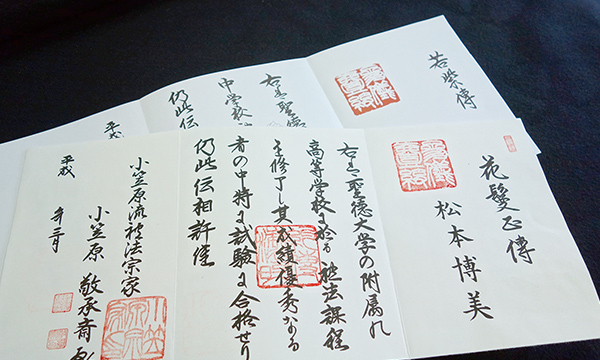 花鬘正傳
松本博美
右は聖徳大学の附属
高等学校に於る禮法課程
を修了し其成績優秀なる
者の中特に試験に合格せり
仍此伝相許
小笠原流禮法宗家
小笠原 敬承斎
平成 年三月
若紫傳
右は聖徳
中学校
仍此伝
平成